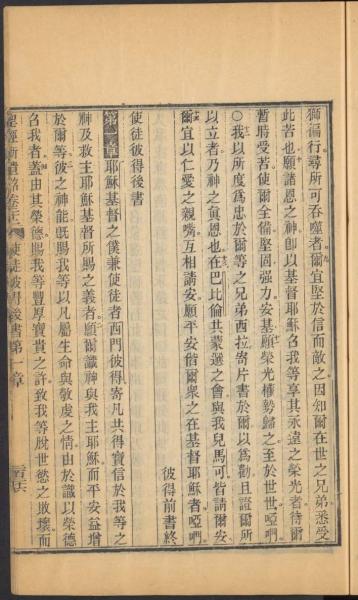 獅徧行尋所可吞噬者爾宜堅於信而敵之因知爾在世之兄弟悉受
此苦也願諸恩之神即以基督耶穌召我等享其永遠之榮光者待爾
暫時受苦使爾全備堅固强力安基願榮光權勢歸之至於世世啞們
○我以所度爲忠於爾等之兄弟西拉寄片書於爾以爲勸且證爾所
以立者乃神之眞恩也在巴比倫共蒙選之會與我兒馬可皆請爾安
爾宜以仁愛之親嘴互相請安願平安偕爾衆之在基督耶穌者啞們
彼得前書終
使徒彼得後書
第一章耶穌基督之僕兼使徒者西門彼得寄凡共得寶信於我等之
神及救主耶穌基督所賜之義者願爾識神與我主耶穌而平安益增
於爾等彼之神能旣賜我等以凡屬生命與敬虔之情由於識以榮德
召我者蓋由其榮德賜我等豐厚寶貴之許致我等脫世慾之敗壞而
聖經新遺詔 使徒彼得後書第一章